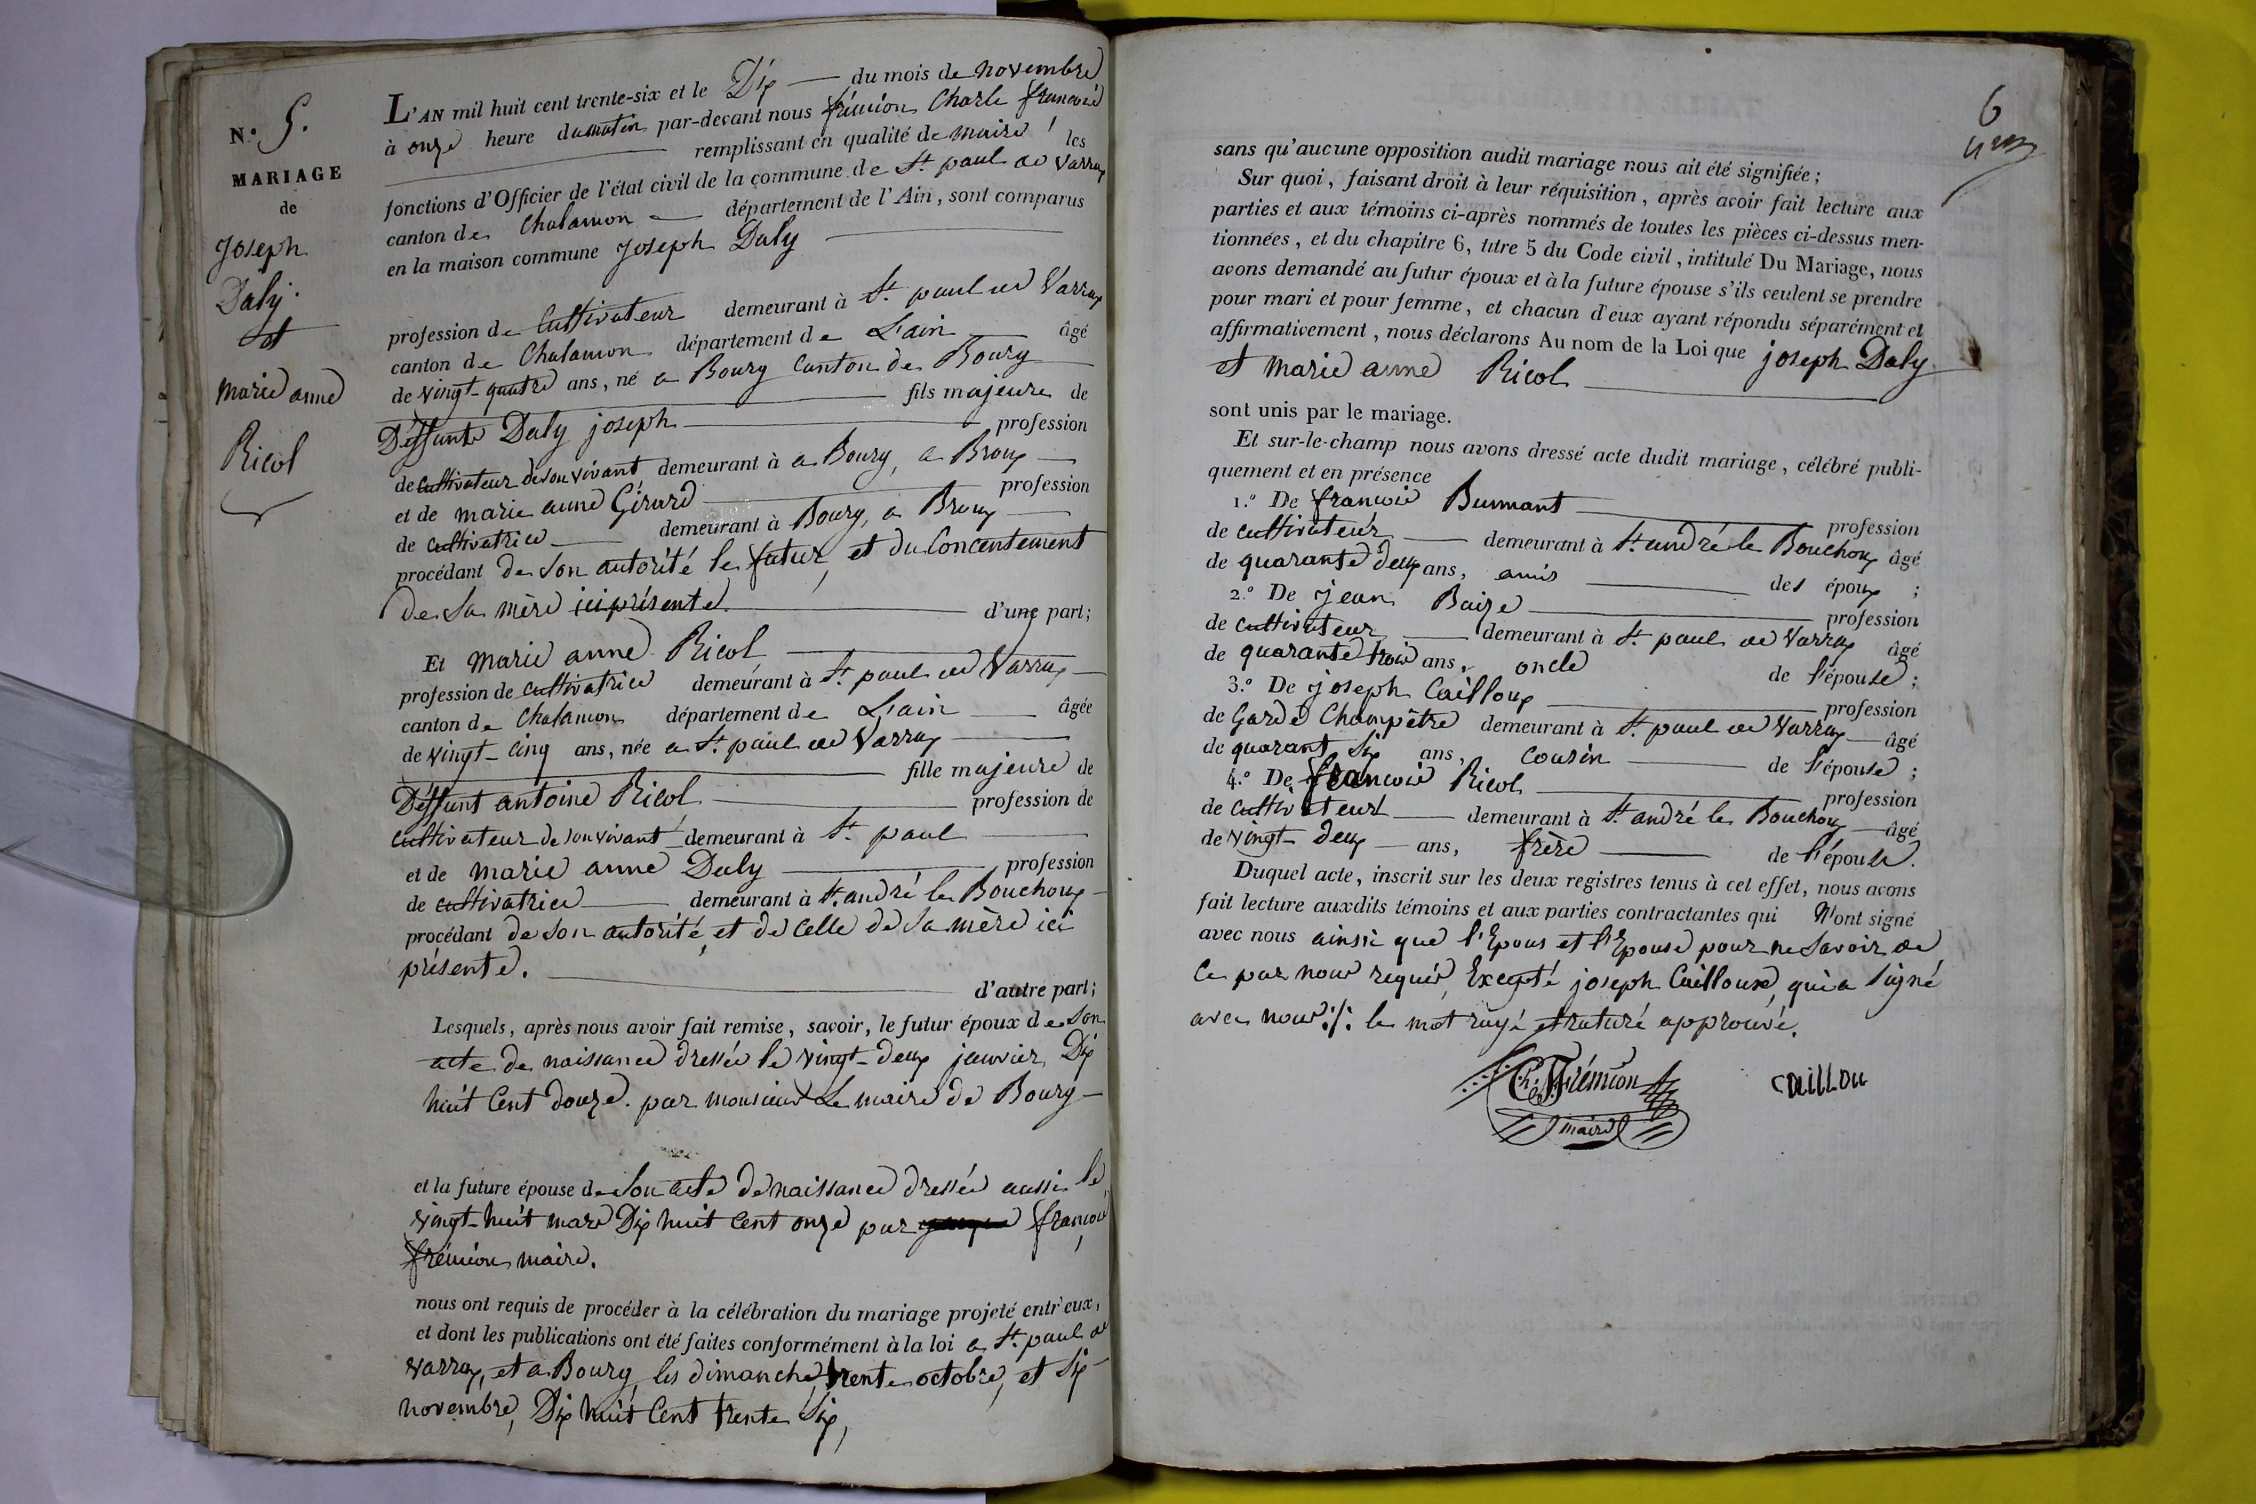 N.° 5.
MARIAGE
de
Joseph
Daly.
et
marie anne
Ricol
L'AN mil huit cent trente-six et le Dix du mois de novembre
à onze heure du matin par-devant nous frémion Charle francois
remplissant en qualité de maire les
fonctions d'Officier de l'état civil de la commune de St. paul de Varrax
canton de Chalamon département de l'Ain, sont comparus
en la maison commune Joseph Daly
profession de Cultivateur demeurant à St. paul de Varrax
canton de Chalamon département de L'ain âgé
de vingt-quatre ans, né a Bourg Canton de Bourg
fils majeure de
Déffunte Daly joseph profession
de Cultivateur de son vivant demeurant à a Bourg, a Broux
et de marie anne Girard profession
de cultivatrice demeurant à Bourg, a Broux
procédant de son autorité le futur, et du Concentement
de sa mère ici présente. d'une part;
Et marie anne Ricol
profession de cultivatrice demeurant à St. paul de Varrax
canton de Chalamon département de L'ain âgée
de vingt-cinq ans, née a St. paul de Varrax
fille majeure de
Déffunt antoine Ricol profession de
Cultivateur de son vivant demeurant à St. paul
et de marie anne Daly profession
de cultivatrice demeurant à St. andré le Bouchoux
procédant de son autorité, et de celle de sa mère ici
présente.
d'autre part;
Lesquels, après nous avoir fait remise, savoir, le futur époux de Son
acte de naissance dressée le vingt-deux janvier Dix
huit Cent douze. par monsieur Le maire de Bourg
et la future épouse de Son acte de naissance dressée aussi le
vingt-huit mars Dix huit Cent onze par francois
frémion maire.
nous ont requis de procéder à la célébration du mariage projeté entr'eux,
et dont les publications ont été faites conformément à la loi a St. paul de
varrax, et a Bourg les dimanche trente octobre, et Six
novembre, Dix huit Cent trente Six,
6
sans qu'aucune opposition audit mariage nous ait été signifiée;
Sur quoi, faisant droit à leur réquisition, après avoir fait lecture aux
parties et aux témoins ci-après nommés de toutes les pièces ci-dessus men-
tionnées, et du chapitre 6, titre 5 du Code civil, intitulé Du Mariage, nous
avons demandé au futur époux et à la future épouse s'ils veulent se prendre
pour mari et pour femme, et chacun d'eux ayant répondu séparément et
affirmativement, nous déclarons Au nom de la Loi que joseph Daly
et marie anne Ricol
sont unis par le mariage.
Et sur-le-champ nous avons dressé acte dudit mariage, célébré publi-
quement et en présence
1.° De francois Burmant profession
de cultivateur demeurant à St. andré le Bouchoux âgé
de quarante deux ans, amis des époux ;
2.° De jean Baize profession
de cultivateur demeurant à St. paul de Varrax âgé
de quarante trois ans, oncle de l'épouse ;
3.° De joseph Cailloux profession
de Garde Champêtre demeurant à St. paul de Varrax âgé
de quarant Six ans, cousin de l'épouse ;
4.° De francois Ricol profession
de cultivateur demeurant à St. andré le Bouchoux âgé
de vingt-deux ans, frère de l'épouse.
Duquel acte, inscrit sur les deux registres tenus à cet effet, nous avons
fait lecture auxdits témoins et aux parties contractantes qui N'ont signé
avec nous ainsi que l'Epous et l'Epouse pour ne Savoir de
ce par nous requis, Excepté joseph Cailloux, qui a Signé
avec nous ./. le mot rayé et raturé approuvé.
Ch. Frémion
maire
CAILLOU